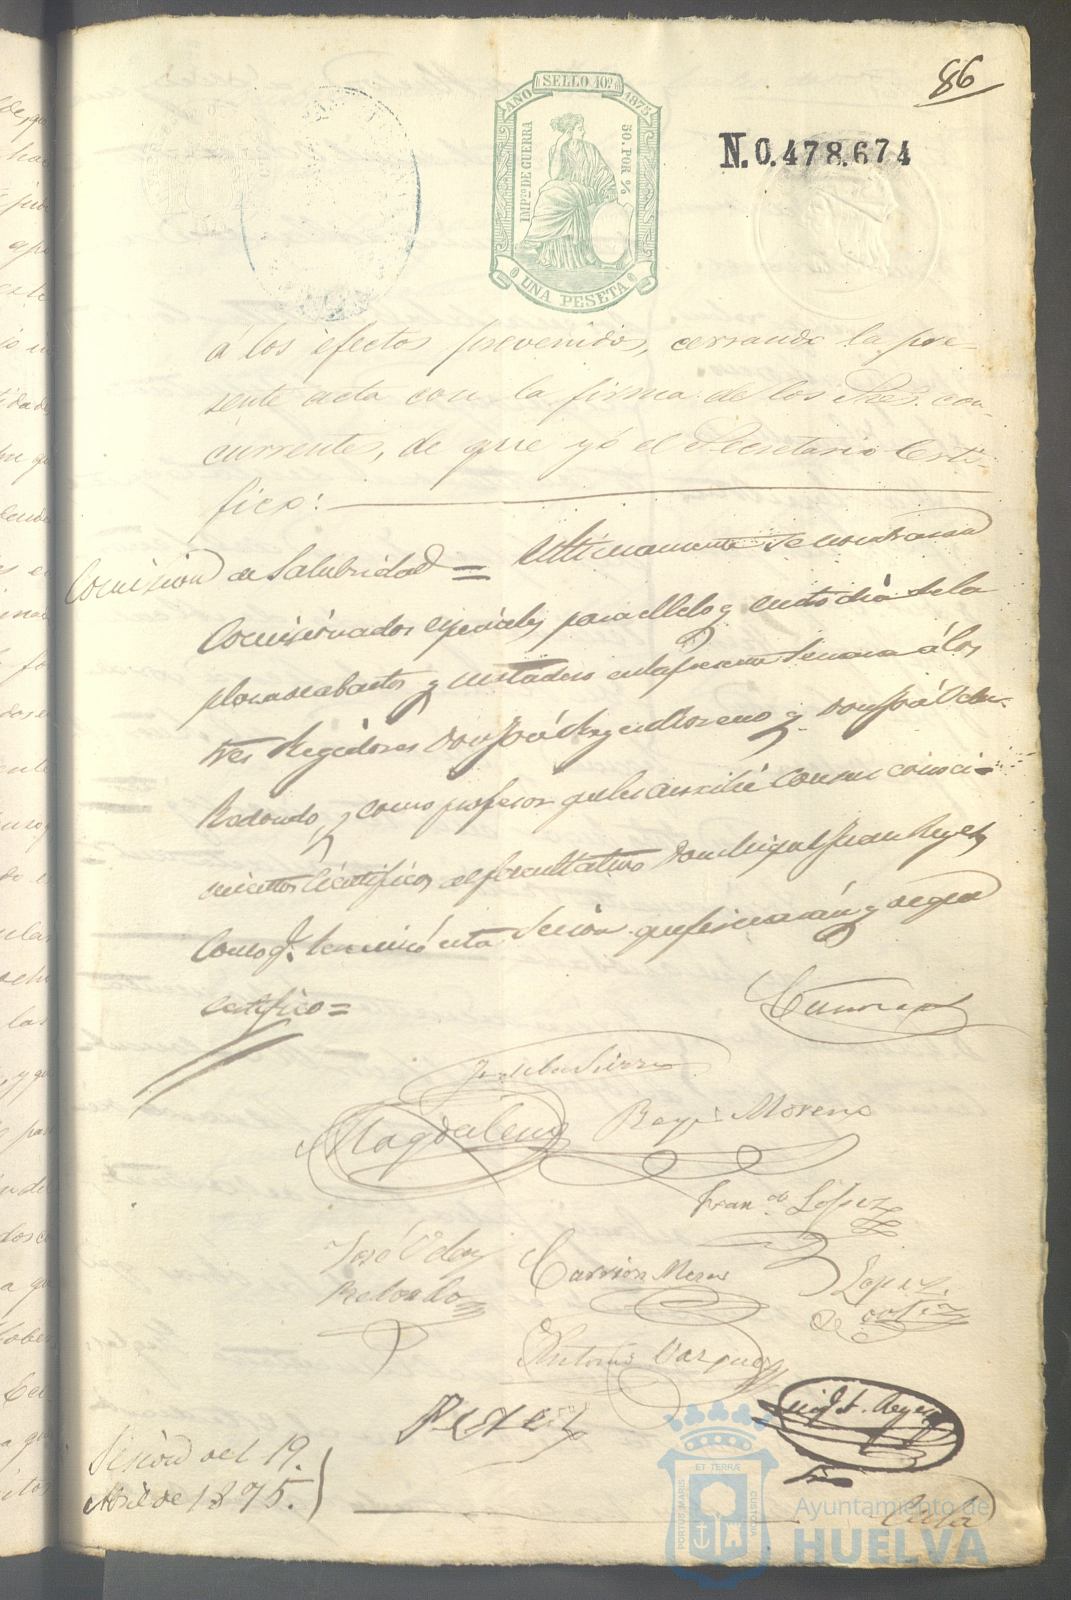 86
AÑO SELLO 10º 1875
IMPTO DE GUERRA
50. POR %
UNA PESETA
N.0.478.674
á los efectos prevenidos, cerrando la pre-
sente acta con la firma de los Sres. con-
currentes, de que yó el Secretario Certi-
fico:
Comision de Salubridad = Ultimamente se nombraron
Comisionados especiales para el celo y custodia de la
plaza de abastos y matadero en la presente semana á los
tres Regidores Don José Reyes Moreno y Don José Odon
Redondo, y como profesor que les auxilie con sus conoci-
mientos cientificos al facultativo Don Miguel Juan Reyes
Con lo q. terminó esta Sesion que firmarán y de que
certifico =
Jn de la Sierra
Magdalena
Reyes Moreno
Franco López
José Odon
Redondo
Carrion
Lopez
de
Antonio Vazquez
Sesion del 19.
Abril de 1875.
ET TERRÆ
PORTUS MARIS
CUSTODIA
Ayuntamiento de
HUELVA